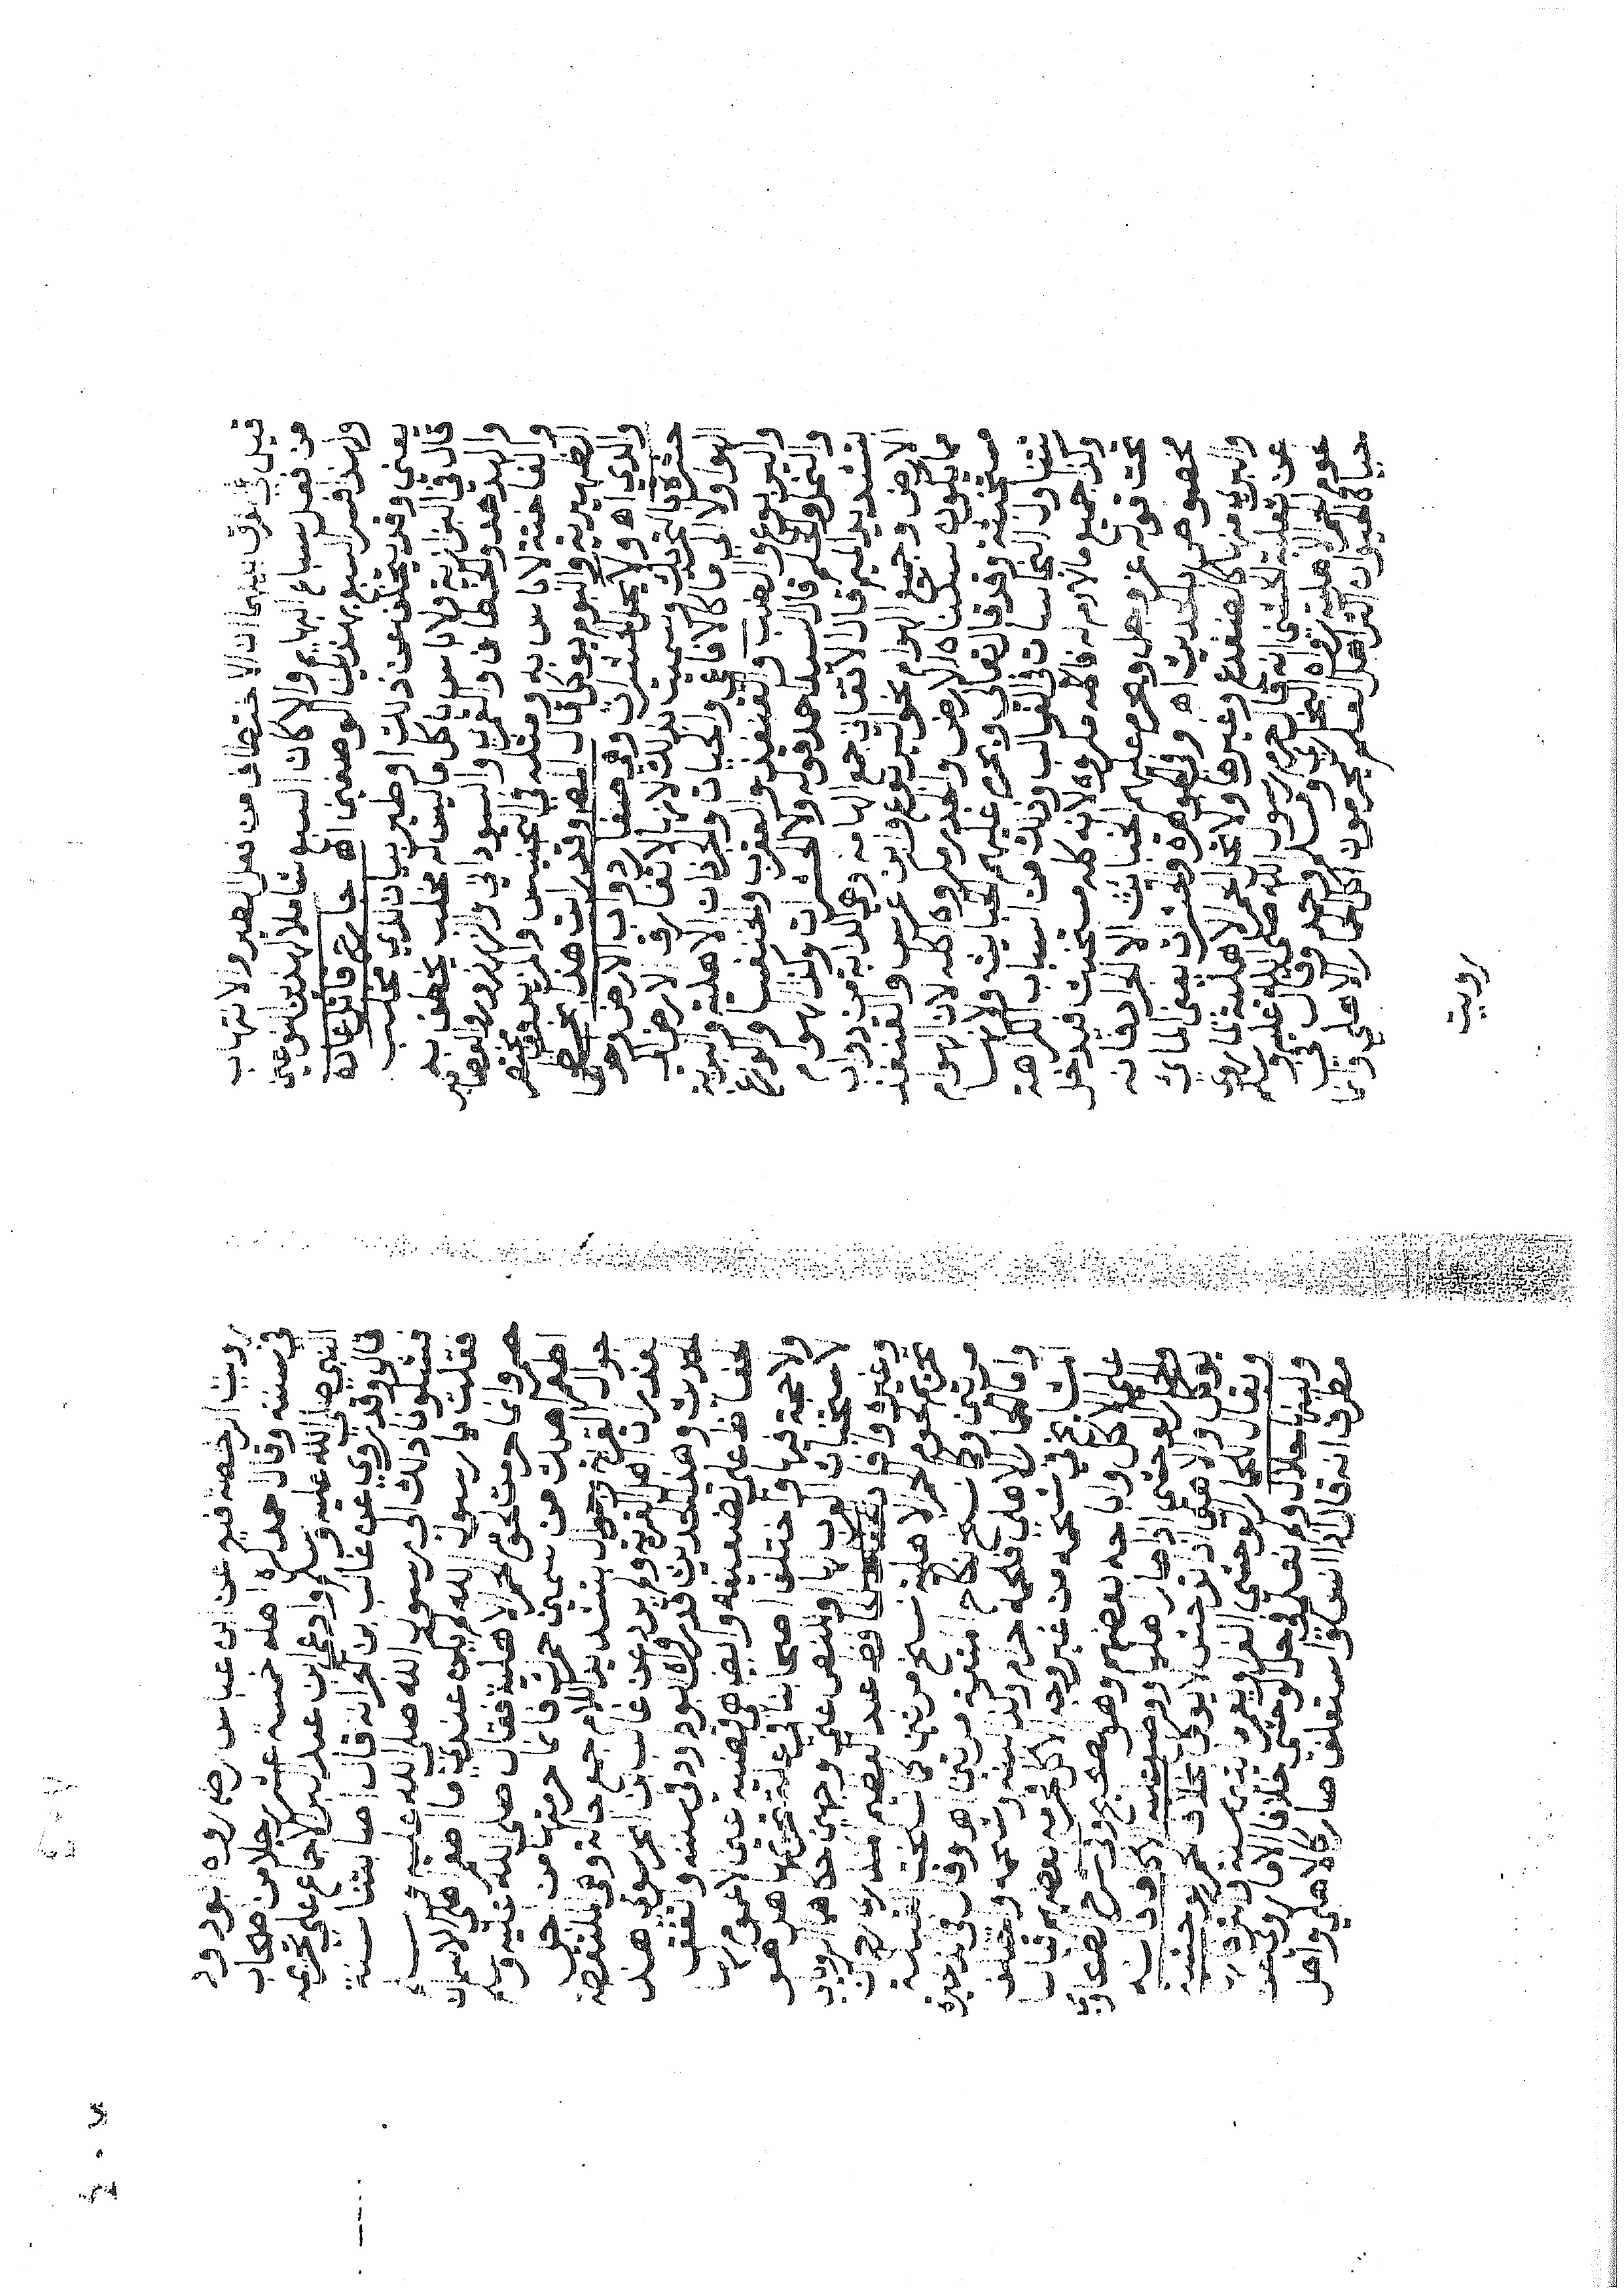 قيل في الفرق بينهما ان الاختطاف من فعل الطير والانتهاب
من فعل سباع البهائم والا كان السبع شاملا لهذين النوعين
ولهذا فسر السبع بهذين الوصفين اه
يعني وقد يختلف عن ذلك او طير بيان لذي مخلب
قال في البزازية ولا باس باكل ما ليس له مخلب يخطف به
والهدهد والخطاف والقمري والسوداني والزرزور والعصافير
والفاختة لا باس به ومثله في التجنيس والمزيد وفي
الظهيرية والبوم يوكل قال المص وقد رايت هذا بخط
والدي اه ولا يحل الحشرات وهي صغار دواب الارض واحدها
حشرة بالتحريك وسميت بذلك لانها لا تفارق الارض الى
الهواء ولا الى ما كالافاعي والحيات والجرذان الاهلية والبرية
واليربوع والضب والقنفذ والعقرب والخنفسا والوزغ
والنحل والنمل قال السيد احمد قوله ولا الحشرات وكذا الهوام
بتشديد الميم قال الاتقاني جمع الهامة وهي الدابة من دواب
الارض وجميع الهوام نحو اليربوع وابن عرس والقنفذ
مما يكون سكناه الارض والجدر مكروه اكله لان الهوام
مستخبثة وقد قال تعالى ويحرم عليهم الخبائث ولانها
تتناول النجاسات في الغالب وذلك من اسباب الكراهة
وكذا جميع ما لا دم له فاكله مكروه لانه كله مستخبث فيدخل
تحت قوله عز وجل ويحرم عليهم الخبائث الا الجراد فانه
مخصوص بالحديث اه
والبر منها كالضفدع وغيرها ولا الحمر الاهلية لما روي
عن ثعلبة الخشني انه قال حرم رسول الله صلى الله عليه وسلم
لحوم الحمر الاهلية رواه البخاري ومسلم واحمد وقال في
حياة الحيوان اكثر اهل العلم يحرمون اكل الحمار الاهلي وانما
رويت
رويت الرخصة فيه عن ابن عباس رضي رواه ابو داود
في سننه وقال احمد كره اكله خمسة عشر رجلا من اصحاب
النبي صلى الله عليه وسلم وادعى ابن عبد البر الاجماع على تحريمه
قال وقد روي عن غالب بن ابجر انه قال اصابتنا سنة
فشكونا ذلك الى رسول الله صلى الله عليه وسلم
فقلت يا رسول الله لم يكن عندي ما اطعم اهلي الا سمان
حمر وانك حرمت لحوم الحمر الاهلية فقال صلى الله عليه وسلم
اطعم اهلك من سمين حمرك فانما حرمتها من اجل
جوال القرية وجوال بتشديد اللام جمع جالة وهي الملتقطة
لعذرات اهل القرية ولم يرو عن غالب بن ابجر سوى هذا
الحديث وهذا الحديث قد رواه ابو داود في سننه واتفق
الحفاظ على تضعيفه
ولا حجة فيها واختلف اصحابنا في علة تحريمها هل هو
لاستخباث العرب لها او للنص على وجهين حكاهما الروياني
وغيره وافاد الحافظ عبد العظيم المنذري ان
تحريم لحوم الحمر الاهلية نسخ مرتين كما نسخت القبلة
مرتين ونسخ نكاح المتعة مرتين اه وقال في الذخيرة
واما الحمار الاهلي فلحمه حرام وكذا لبنه وشحمه واختلف
المشايخ في شحمه من غير وجه الاكل فحرمه بعضهم قياسا
على الاكل واباحه بعضهم وهو الصحيح
والحمار الوحشي اذا صار اهليا ووضع عليه الاكاف فانه
يوكل والاهلي اذا توحش لا يوكل
ويقال للحمار الوحشي الفرا
وليس بحلال
مطرف انه قال اذا انس واستعلف صار كالاهلي واهل